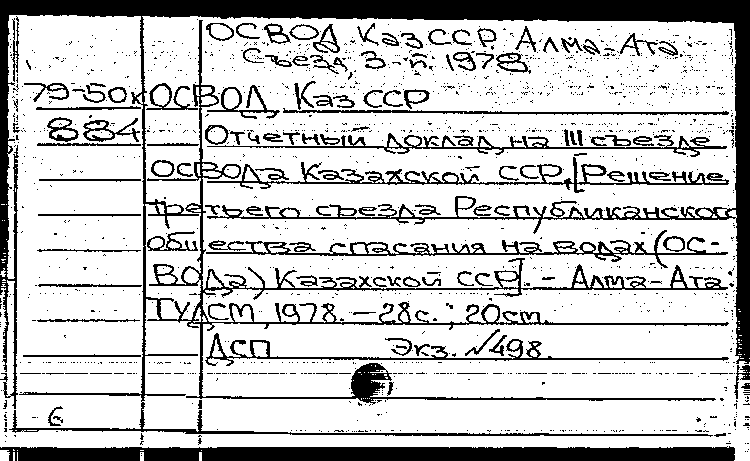 ОСВОД КазССР. Алма-Ата.
Съезд, 3-й. 1978.
79-50к ОСВОД КазССР
884 Отчетный доклад на III съезде
ОСВОДа Казахской ССР, [Решение
третьего съезда Республиканского
общества спасания на водах (ОС-
ВОДа) Казахской ССР]. - Алма-Ата:
ТУДСМ, 1978. - 28с.; 20см.
ДСП Экз. №498.
6